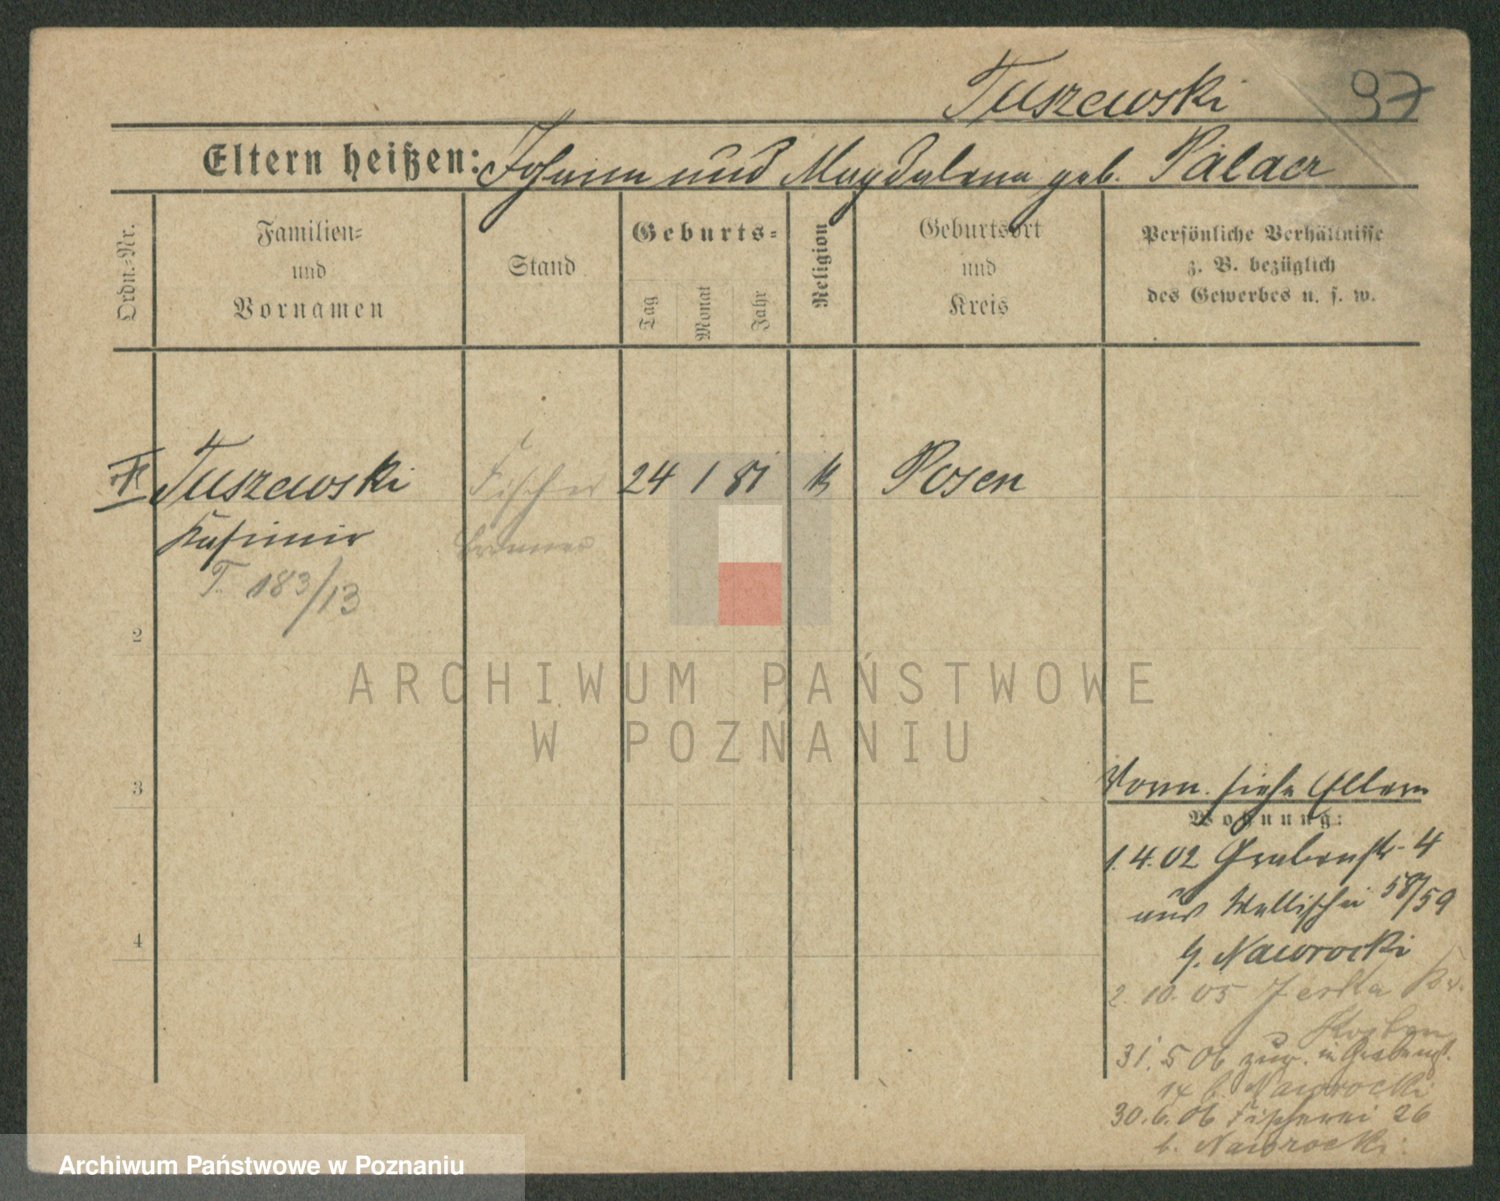 Tuszewski 97
Eltern heißen: Johann und Magdalena geb. Palacz
Ordn.-Nr.
Familien-
und
Vornamen
Stand
Geburts-
Tag
Monat
Jahr
Religion
Geburtsort
und
Kreis
Persönliche Verhältnisse
z. B. bezüglich
des Gewerbes u. s. w.
Tuszewski Fischer 24 1 81 k Posen
Kasimir
T. 183/13
2
3
4
Vorw. siehe Eltern
Wohnung:
1.4.02 Grabenstr. 4
aus Wallischei 58/59
b. Nawrocki
2.10.05
31.5.06 zur. in Grabenstr.
14 b. Nawrocki
30.6.06 Fischerei 26
b. Nawrocki
ARCHIWUM PAŃSTWOWE
W POZNANIU
Archiwum Państwowe w Poznaniu